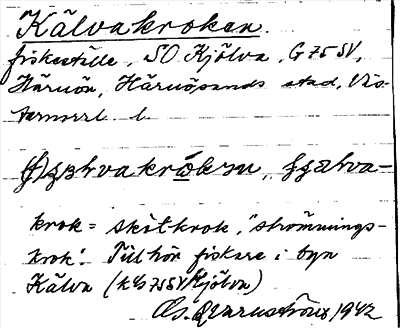 Kälvakroken.
fiskeställe, SO Kjölva, G 75 SV,
Härnön, Härnösands stad, Väs-
ternorrl. l.
krok = skötkrok, "strömmings-
krok". Tillhör fiskare i byn
Kälva (k G 75 SV Kjölva)
1942